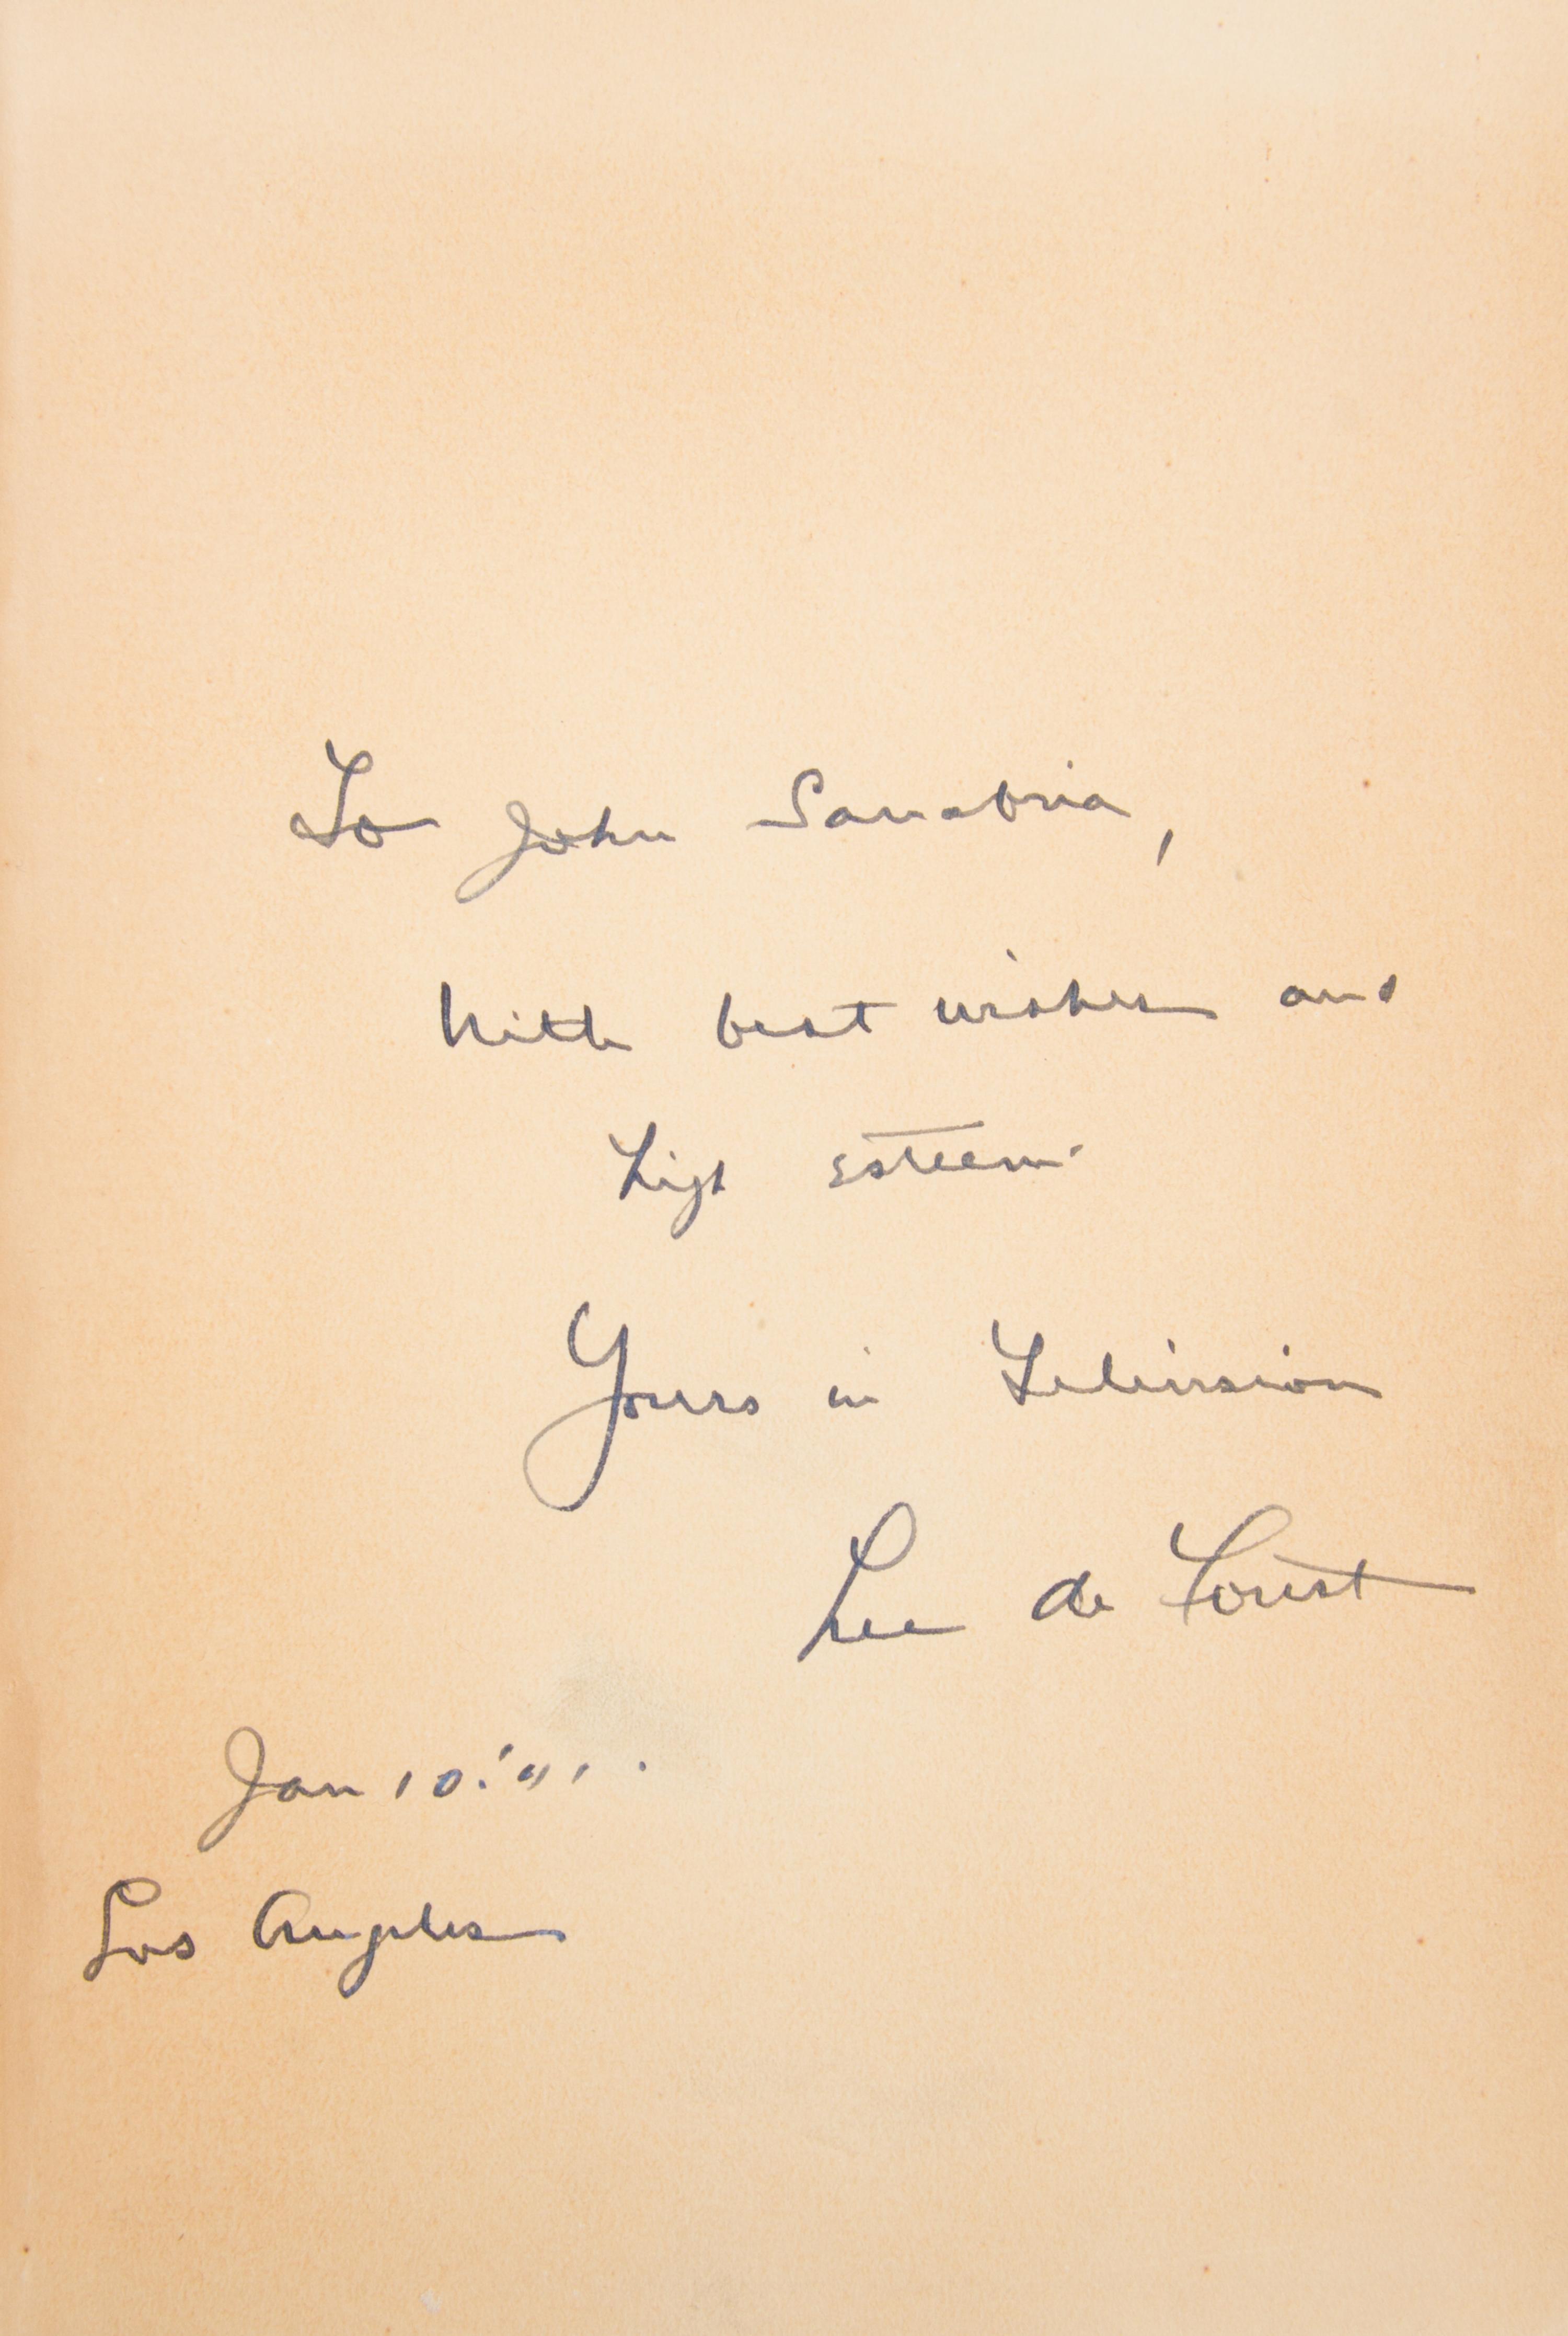 To John Sanabria,
With best wishes and
high esteem
Yours in Television
Lee de Forest
Jan 10.
Los Angeles